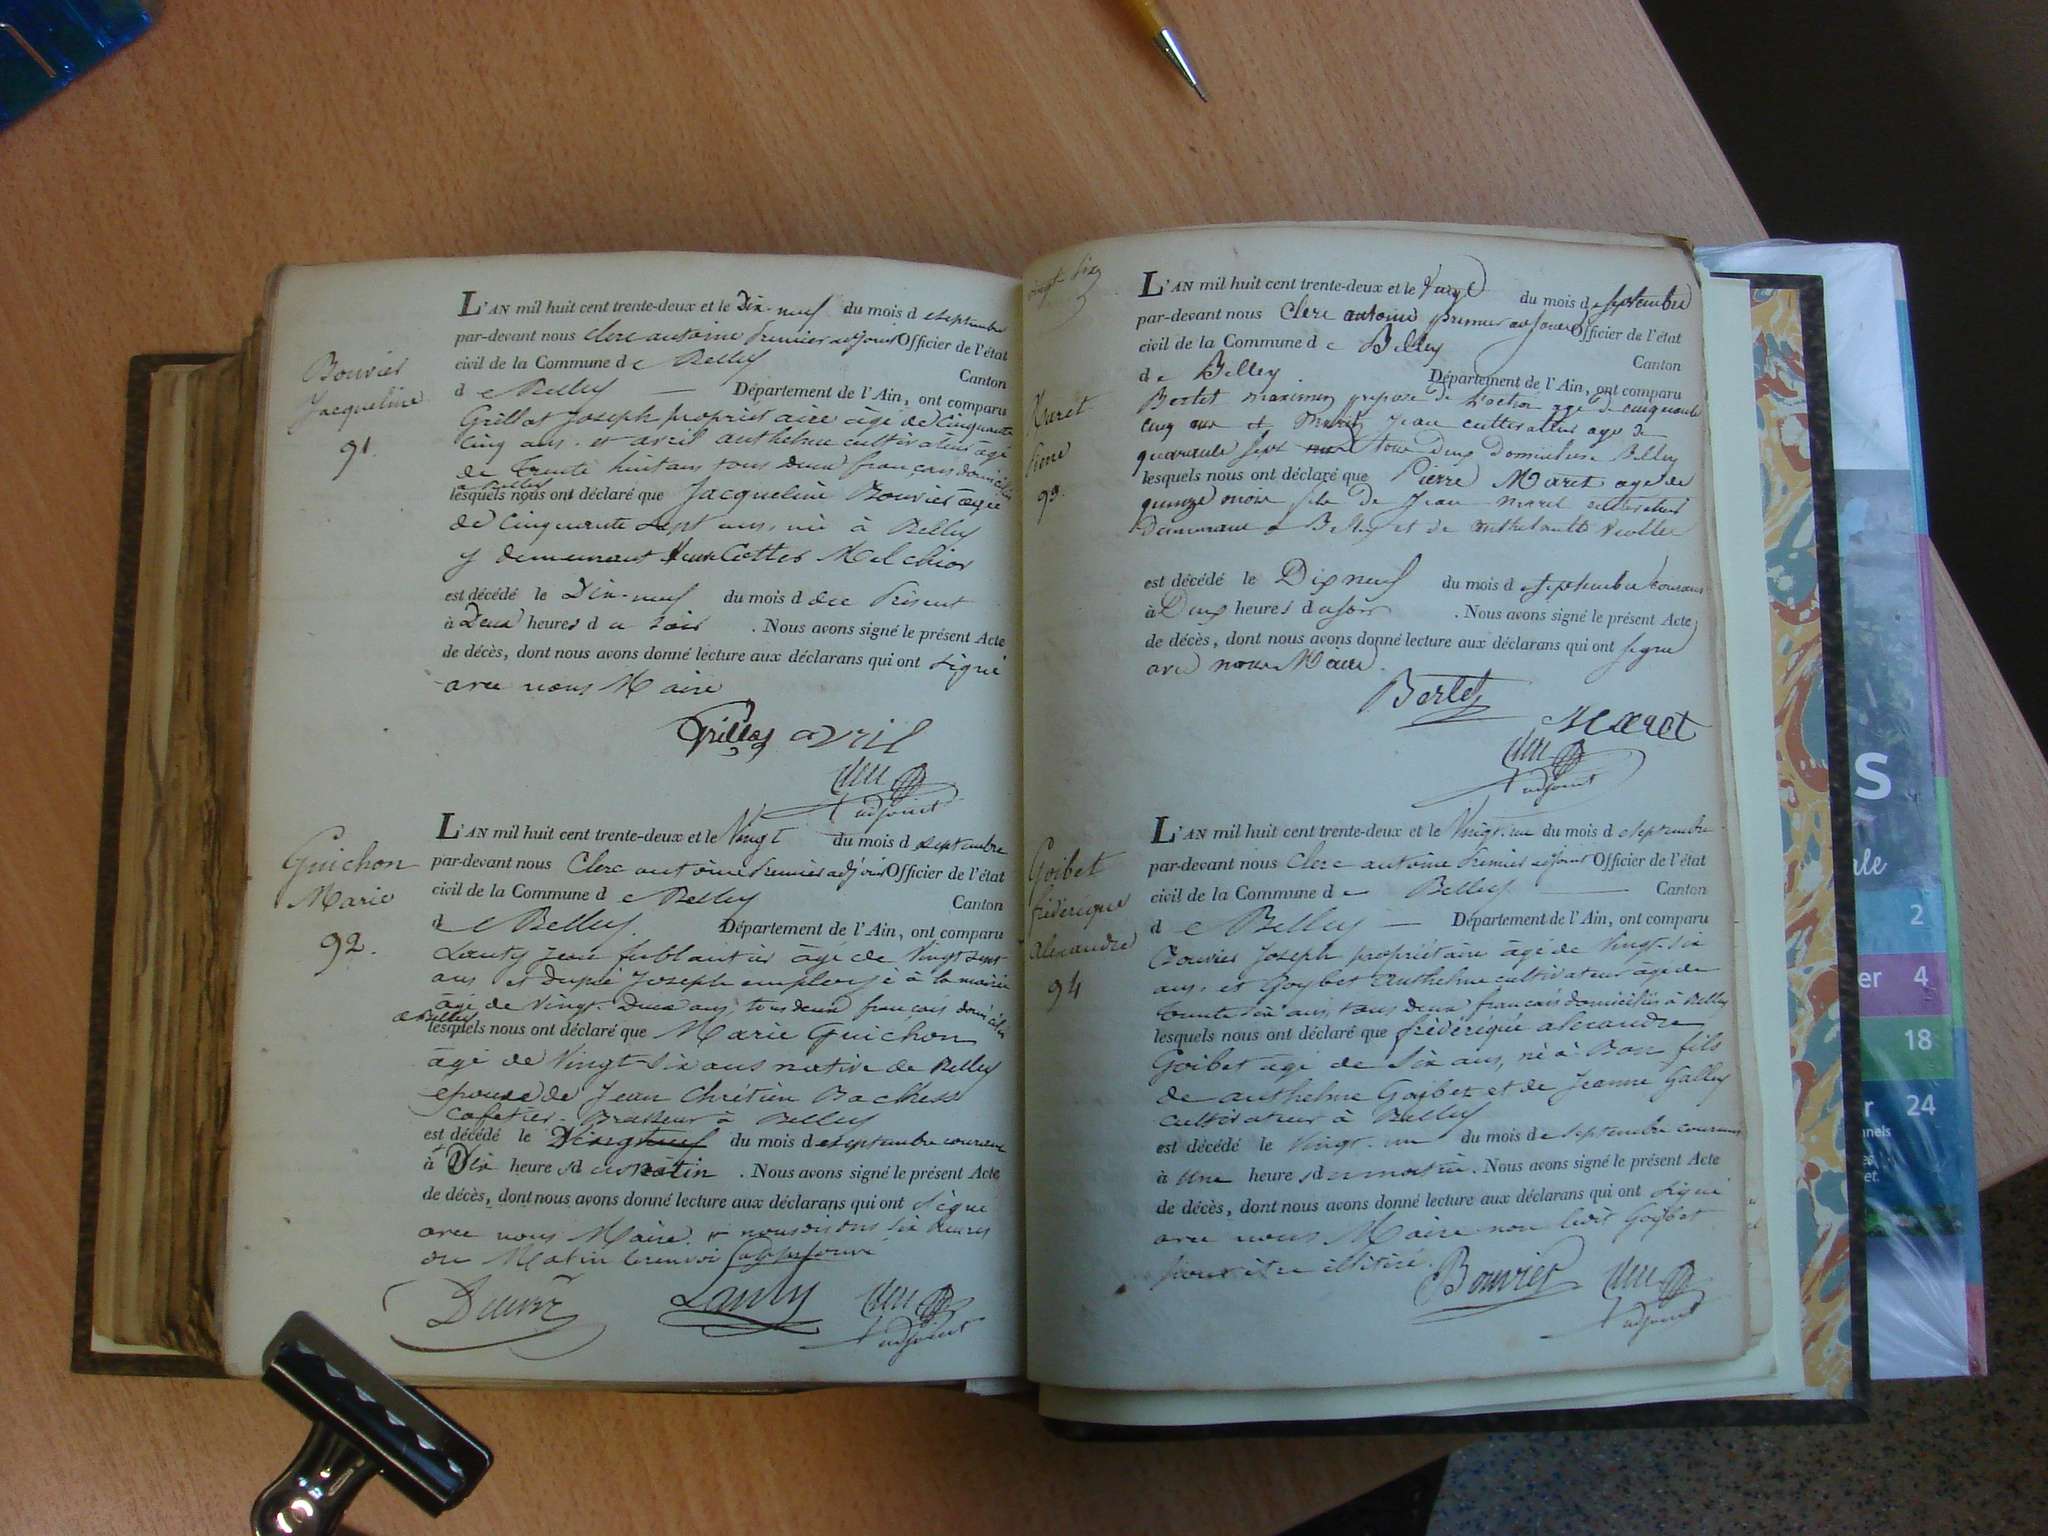 Bouvier
Jacqueline
91.
L'AN mil huit cent trente-deux et le Dix-neuf du mois de septembre
par-devant nous Clerc antoine Premier adjoint Officier de l'état
civil de la Commune de Belley Canton
de Belley — Département de l'Ain, ont comparu
Grillot Joseph propriétaire âgé de Cinquante
Cinq ans. et avril anthelme cultivateur âgé
de Trente huit ans tous deux français domiciliés
a Belley
lesquels nous ont déclaré que Jacqueline Bouvier âgée
de Cinquante sept ans, née à Belley
y demeurant Veuve Cottes Melchior
est décédé le Dix-neuf du mois d du Présent
à Deux heures du soir . Nous avons signé le présent Acte
de décès, dont nous avons donné lecture aux déclarans qui ont signé
avec nous Maire
Grillot avril
adjoint
Guichon
Marie
92.
L'AN mil huit cent trente-deux et le Vingt du mois de septembre
par-devant nous Clerc antoine Premier adjoint Officier de l'état
civil de la Commune de Belley Canton
de Belley. Département de l'Ain, ont comparu
Lanty Jean ferblantier âgé de Vingt sept
ans et Dupré Joseph employé à la mairie
âgé de Vingt-Deux ans, tous deux français domiciliés
a Belley
lesquels nous ont déclaré que Marie Guichon
âgé de Vingt-six ans native de Belley
épouse de Jean Chrétien Backess
Cafetier-Brasseur à Belley
est décédé le Vingt du mois de septembre courant
à Dix heures du matin . Nous avons signé le présent Acte
de décès, dont nous avons donné lecture aux déclarans qui ont signé
avec nous Maire. + nous disons six heures
du Matin le renvoi approuvé
Lanty
adjoint
vingt six
Maret
Pierre
93.
L'AN mil huit cent trente-deux et le Vingt du mois de septembre
par-devant nous Clerc antoine premier adjoint Officier de l'état
civil de la Commune de Belley Canton
de Belley Département de l'Ain, ont comparu
Bertet Maximin préposé de l'octroi agé de cinquante
cinq ans et Maret Jean cultivateur age de
quarante sept tous deux Domiciliés a Belley
lesquels nous ont déclaré que Pierre Maret age de
quinze mois fils de Jean maret cultivateur
Demeurant a Belley et de anthelmette
est décédé le Dix neuf du mois de septembre courant
à Deux heures du soir . Nous avons signé le présent Acte
de décès, dont nous avons donné lecture aux déclarans qui ont signé
avec nous Maire.
Bertet
Maret
adjoint
Goibet
frédérique
alexandre
94
L'AN mil huit cent trente-deux et le Vingt-un du mois de septembre
par-devant nous Clerc antoine Premier adjoint Officier de l'état
civil de la Commune de Belley — Canton
de Belley — Département de l'Ain, ont comparu
Bouvier Joseph propriétaire âgé de Vingt-six
ans, et Goybet Anthelme cultivateur âgé de
trente six ans, tous deux français domiciliés à Belley
lesquels nous ont déclaré que frédérique alexandre
Goibet âgé de Six ans, né à Bon fils
de anthelme Goibet et de Jeanne Galley
cultivateur à Belley
est décédé le Vingt-un du mois de septembre courant
à une heures du matin. Nous avons signé le présent Acte
de décès, dont nous avons donné lecture aux déclarans qui ont signé
avec nous Maire non ledit Goybet
pour être illitéré.
Bouvier
adjoint
s
ale
2
er 4
18
r 24
nnels
et.